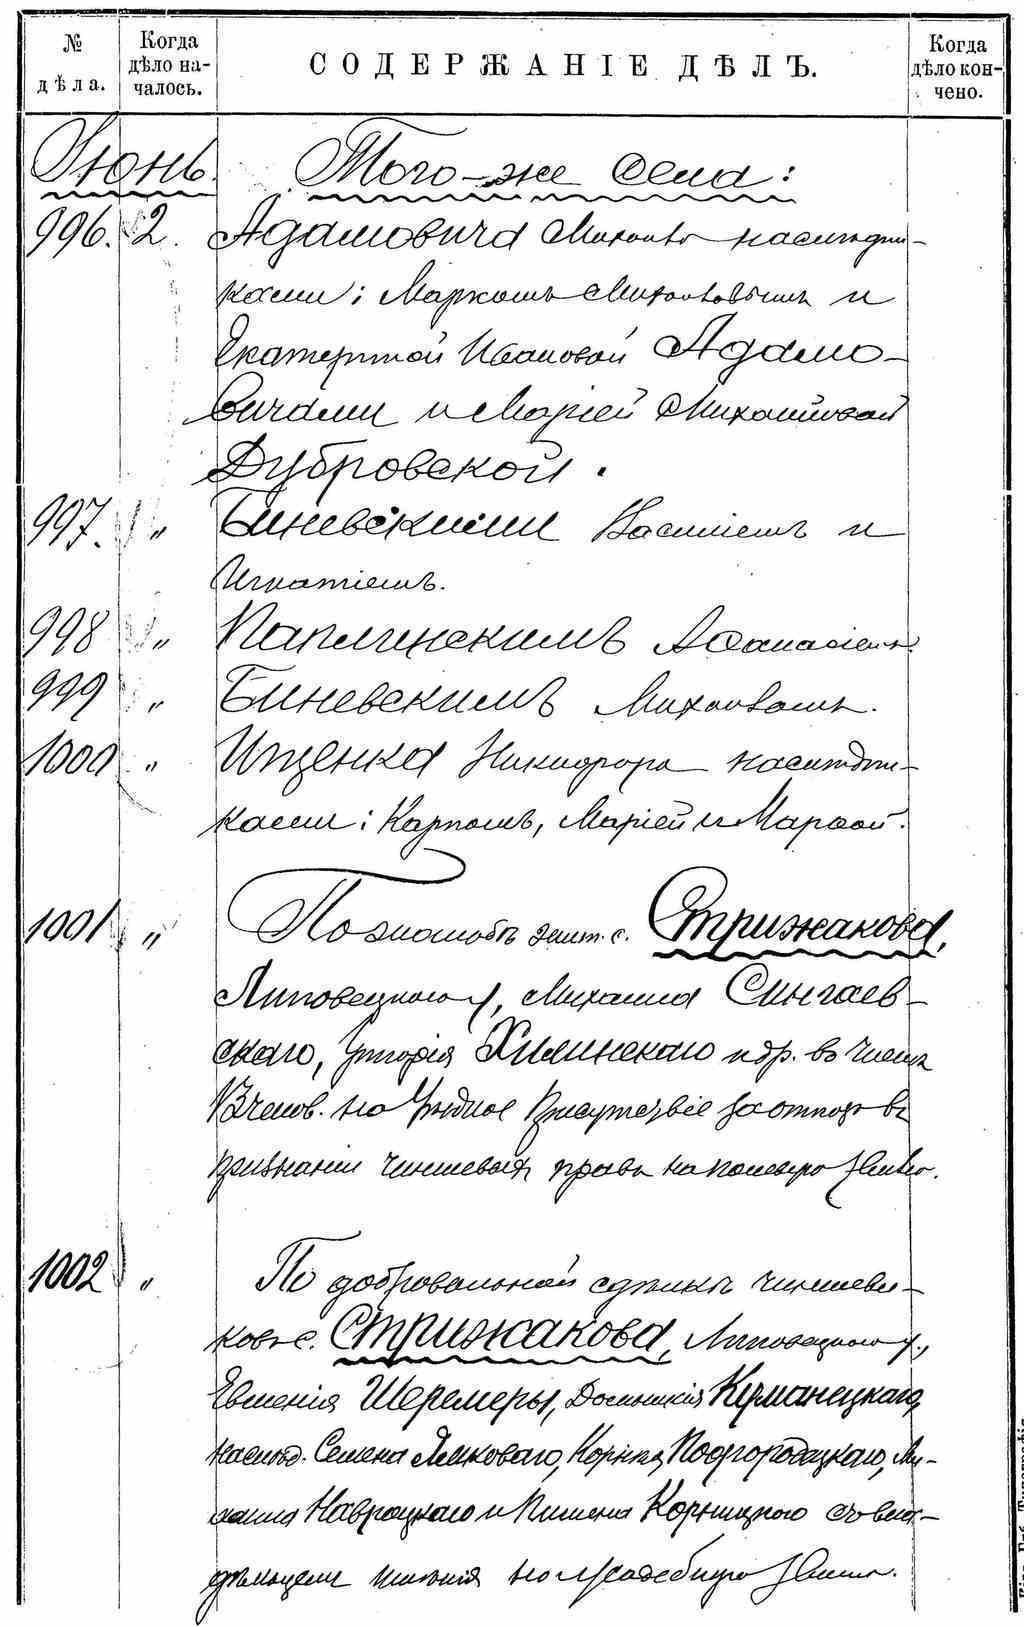 № дѣла.
Когда дѣло началось.
СОДЕРЖАНІЕ ДѢЛЪ.
Когда дѣло кончено.
Іюнь. Того-же села:
996. 2. Адамовича Михаила наслѣдни-
ками: Маркомъ Михайловымъ и
Екатериной Ивановой Адамо-
вичами и Маріей Михайловой
Дубровской.
997. „ Биневскими Василіемъ и
Игнатіемъ.
998 „ Паплинскимъ Афанасіемъ.
999 „ Биневскимъ Михаиломъ.
1000 „ Ищенка Никифора наслѣдни-
ками: Карпомъ, Маріей и Марфой.
1001 „ По жалобѣ жит. с. Стрижакова,
Липовецкаго у, Михаила Сингаев-
скаго, Григорія Хилинскаго и др. въ числѣ
13 челов. на Уѣздное Присутствіе за отказъ въ
признаніи чиншевыхъ правъ на полевую землю.
1002 „ По добровольной сдѣлкѣ чиншеви-
ковъ с. Стрижакова, Липовецкаго у.,
Евгенія Шеремеры, Доминикія Курманецкаго,
наслѣд. Семена Ялковаго, Корнія Подгородецкаго, Ми-
хаила Навроцкаго и Пимена Корницкаго съ вла-
дѣльцемъ имѣнія на усадебную землю.